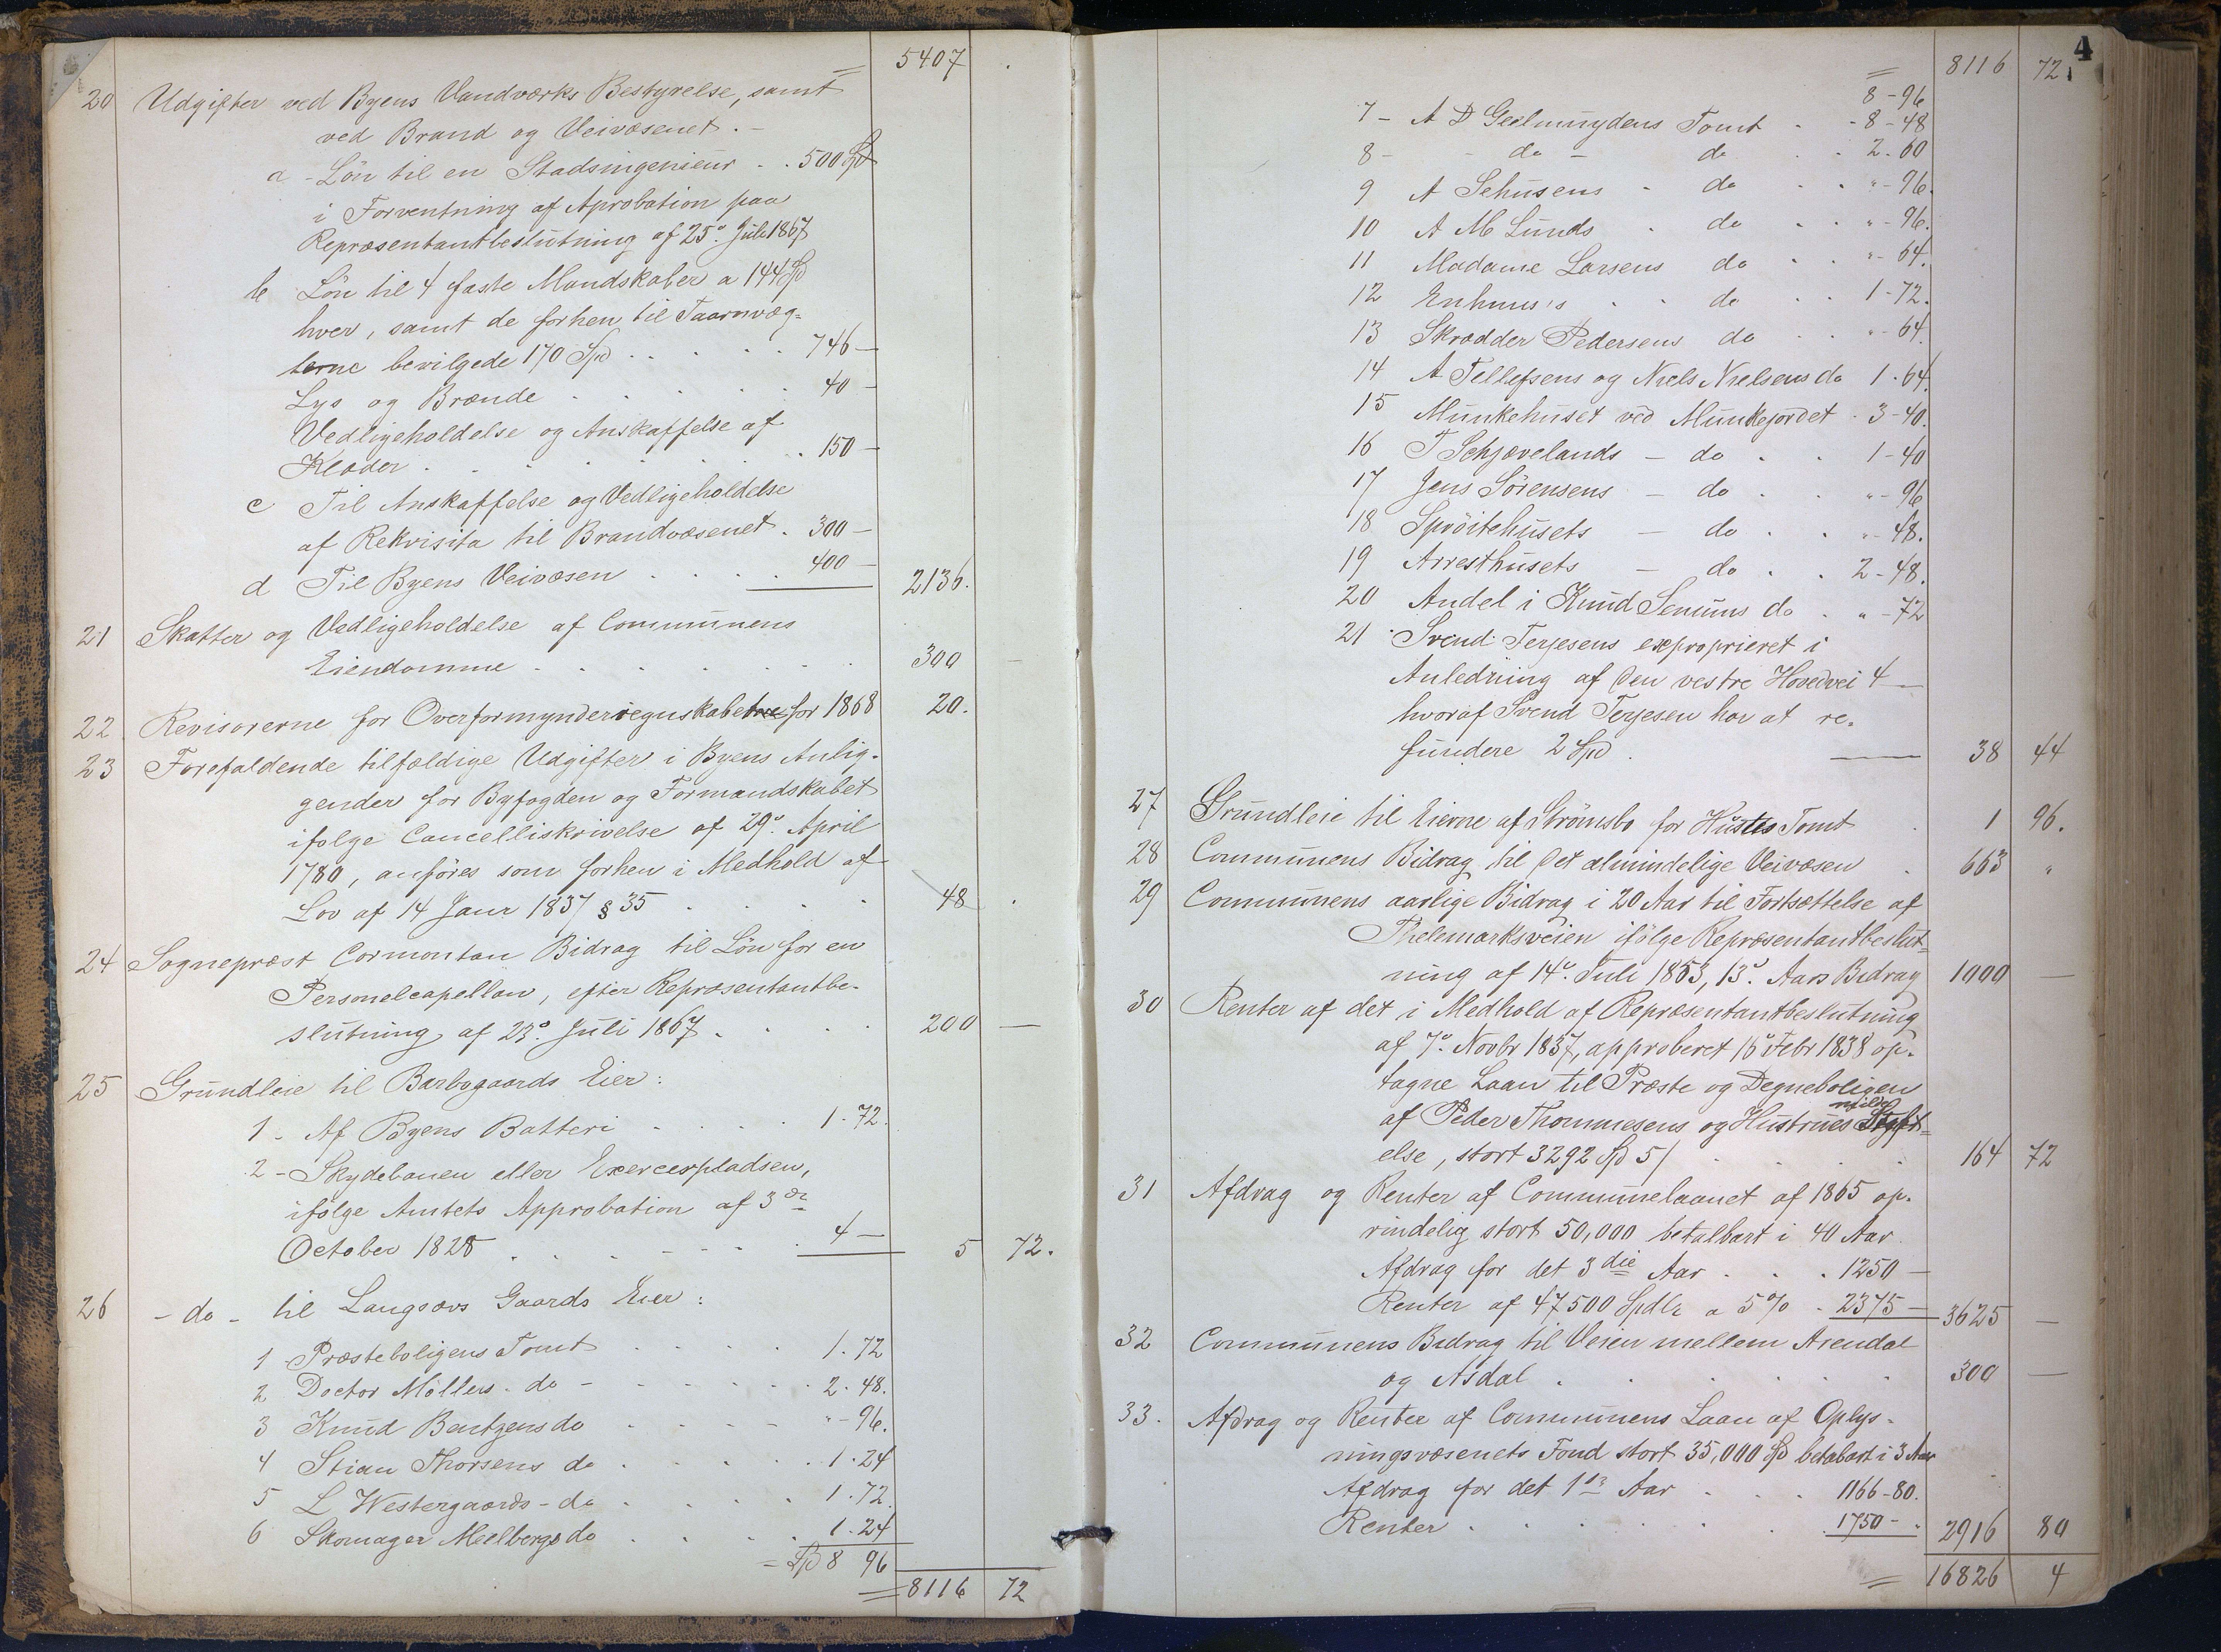 = 5407 .
20 Udgifter ved Byens Vandværks Bestyrelse, samt
ved Brand og Veivæsenet. -
a - Lön til en Stadsingenieur . . 500 Spd
i Forventning af Aprobation paa
Repræsentantbeslutning af 25de Juli 1867
b Lön til 4 faste Mandskaber a 144 Spd
hver, samt de forhen til Taarnvæg-
terne bevilgede 170 Spd . . . . . 746 —
Lys og Brænde . . . . . 40 —
Vedligeholdelse og Anskaffelse af
Klæder . . . . . . 150 —
c Til Anskaffelse og Vedligeholdelse
af Rekvisita til Brandvæsenet . 300 —
d Til Byens Veivæsen . . . . 400 — 2136.
21 Skatter og Vedligeholdelse af Communens
Eiendomme . . . . . . . 300 —
22 Revisorerne for Overformynderregnskabet for 1868 20.
23 Forefaldende tilfældige Udgifter i Byens Anlig-
gender for Byfogden og Formandskabet
ifølge Cancelliskrivelse af 29de April
1780, anföres som forhen i Medhold af
Lov af 14 Janr 1837 § 35 . . . . 48 .
24 Sognepræst Cormontan Bidrag til Lön for en
Personelcapellan, efter Repræsentantbe-
slutning af 23de Juli 1867 . . . . 200 —
25 Grundleie til Barbogaards Eier:
1 - Af Byens Batteri . . . . 1 - 72.
2 - Skydebanen eller Exercerpladsen,
ifølge Amtets Approbation af 3de
October 1828 . . . . . . 4 — 5 72.
26 - do - til Langsævs Gaards Eier:
1 Præsteboligens Tomt . . . . 1. 72
2 Doctor Möllers - do - . . . . 2. 48.
3 Knud Bentzens do . . . . " - 96.
4 Stian Thorsens do . . . . . 1 - 24
5 L Westergaards - do . . . . 1 - 72.
6 Skomager Meelbergs do . . . . 1. 24
= Spd 8 96
= 8116 72
4
= 8116 72.
8 - 96
7 - A D Geelmuydens Tomt . - 8 - 48
8 - - do - do . . 2. 60
9 A Sehusens - do . . " - 96.
10 A M Lunds . do . . " - 96.
11 Madame Larsens do . . " - 64.
12 Enhuus's . . do . . 1 - 72.
13 Skrædder Pedersens do . . " - 64.
14 A Tellefsens og Niels Nielsens do 1 - 64.
15 Munkehuset ved Munkejordet . 3 - 40.
16 T Schjævelands — do . . 1 - 40
17 Jens Sörensens — do . . " - 96
18 Spröitehusets — do . . " - 48.
19 Arresthusets — do . . 2 - 48.
20 Andel i Knud Senums do . " - 72
21 Svend Terjesens exproprieret i
Anledning af den vestre Hovedvei 4 —
hvoraf Svend Terjesen har at re-
fundere 2 Spd . 38 44
27 Grundleie til Eierne af Strömsbo for Hustes Tomt . 1 96.
28 Communens Bidrag til det almindelige Veivæsen . 663 "
29 Communens aarlige Bidrag i 20 Aar til Fortsættelse af
Thelemarksveien ifölge Repræsentantbeslut-
ning af 14de Juli 1853, 13de Aars Bidrag 1000 —
30 Renter af det i Medhold af Repræsentantbeslutning
af 7de Novbr 1837, approberet 16de Febr 1838 op-
tagne Laan til Præste og Degneboligen
af Peder Thommesens og Hustrues milde Stift-
else, stort 3292 Spd 5/ . . . . 164 72
31 Afdrag og Renter af Communelaanet af 1865 op-
rindelig stort 50,000 betalbart i 40 Aar
Afdrag for det 3die Aar . . . 1250 —
Renter af 47500 Spdlr a 5% . 2375 — 3625 —
32 Communens Bidrag til Veien mellem Arendal
og Asdal . . . . . . 300 —
33. Afdrag og Renter af Communens Laan af Oplys-
ningsvæsenets Fond stort 35,000 Spd betalbart i 3 Aar
Afdrag for det 1ste Aar . . . 1166 - 80.
Renter . . . . . . 1750 - . 2916 80
= 16826 4